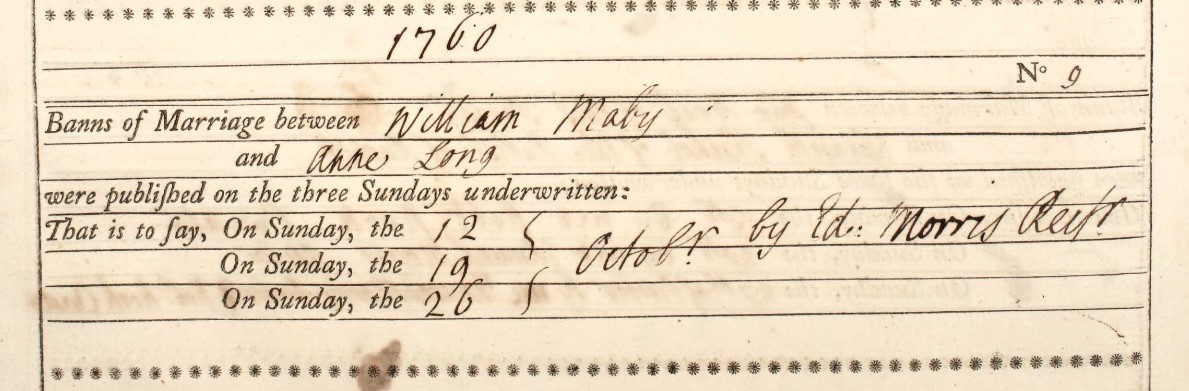 1760
Nº 9
Banns of Marriage between William Maby
and Anne Long
were publiſhed on the three Sundays underwritten:
That is to ſay, On Sunday, the 12
On Sunday, the 19 Octobr. by Ed.: Morris Rectr.
On Sunday, the 26